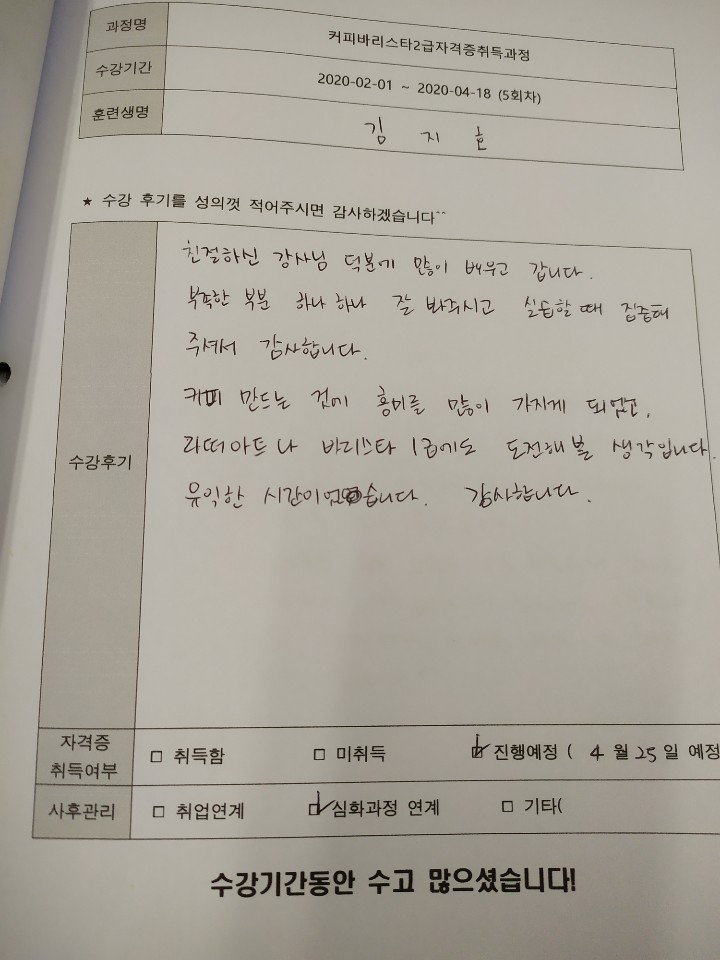 과정명 커피바리스타2급자격증취득과정
수강기간 2020-02-01 ~ 2020-04-18 (5회차)
훈련생명 김 지 훈
★ 수강 후기를 성의껏 적어주시면 감사하겠습니다^^
친절하신 강사님 덕분에 많이 배우고 갑니다.
부족한 부분 하나 하나 잘 봐주시고 실습할 때 집중해
주셔서 감사합니다.
커피 만드는 것에 흥미를 많이 가지게 되었고,
수강후기
라떼아트나 바리스타 1급에도 도전해볼 생각입니다.
유익한 시간이었습니다. 감사합니다.
자격증
취득여부
□ 취득함 □ 미취득 ☑ 진행예정 ( 4 월 25 일 예정
사후관리 □ 취업연계 ☑ 심화과정 연계 □ 기타(
수강기간동안 수고 많으셨습니다!